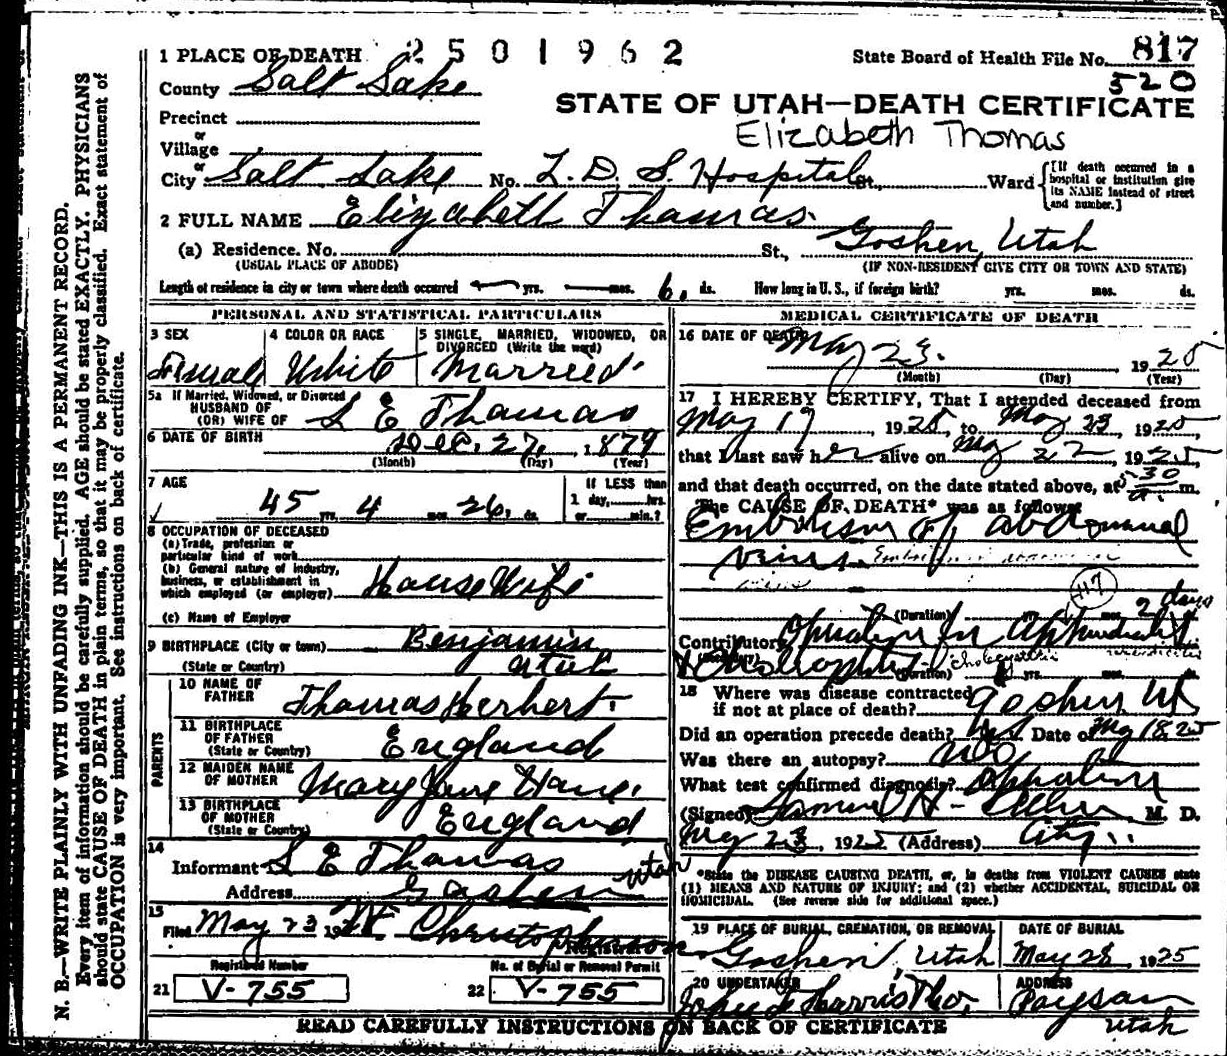 N. B.—WRITE PLAINLY WITH UNFADING INK—THIS IS A PERMANENT RECORD.
Every item of information should be carefully supplied. AGE should be stated EXACTLY. PHYSICIANS
should state CAUSE OF DEATH in plain terms, so that it may be properly classified. Exact statement of
OCCUPATION is very important. See instructions on back of certificate.
1 PLACE OF DEATH 2501962
State Board of Health File No. 817
520
County Salt Lake
STATE OF UTAH—DEATH CERTIFICATE
Precinct
Elizabeth Thomas
or
Village
or
City Salt Lake No. L. D. S. Hospital St., Ward
[If death occurred in a hospital or institution give its NAME instead of street and number.]
2 FULL NAME Elizabeth Thomas
(a) Residence. No. St., Goshen, Utah
(USUAL PLACE OF ABODE) (IF NON-RESIDENT GIVE CITY OR TOWN AND STATE)
Length of residence in city or town where death occurred yrs. mos. 6 ds. How long in U. S., if foreign birth? yrs. mos. ds.
PERSONAL AND STATISTICAL PARTICULARS
3 SEX
Female
4 COLOR OR RACE
White
5 SINGLE, MARRIED, WIDOWED, OR
DIVORCED (Write the word)
Married
5a If Married, Widowed, or Divorced
HUSBAND OF
(OR) WIFE OF S E Thomas
6 DATE OF BIRTH Dec. 27, 1879
(Month) (Day) (Year)
7 AGE
45 yrs. 4 mos. 26 ds.
If LESS than
1 day, hrs.
or min.?
8 OCCUPATION OF DECEASED
(a) Trade, profession or
particular kind of work
(b) General nature of industry,
business, or establishment in
which employed (or employer) House Wife
(c) Name of Employer
9 BIRTHPLACE (City or town) Benjamin
(State or Country) Utah
PARENTS
10 NAME OF
FATHER Thomas Herbert
11 BIRTHPLACE
OF FATHER
(State or Country) England
12 MAIDEN NAME
OF MOTHER Mary Jane
13 BIRTHPLACE
OF MOTHER
(State or Country) England
14
Informant S E Thomas
Address Goshen Utah
15
Filed May 23 192
Registrar
Registered Number
21 V-755
No. of Burial or Removal Permit
22 V-755
MEDICAL CERTIFICATE OF DEATH
16 DATE OF DEATH May 23. 1925
(Month) (Day) (Year)
17 I HEREBY CERTIFY, That I attended deceased from
May 19, 1925, to May 23 1925,
that I last saw her alive on May 22, 1925,
and that death occurred, on the date stated above, at 5 30 a. m.
The CAUSE OF DEATH* was as follows:
Embolism of abdominal
veins.
117
(Duration) yrs. mos. 2 days
Contributory Operation for Appendicitis
(Duration) yrs. mos.
18 Where was disease contracted
if not at place of death? Goshen Ut
Did an operation precede death? Yes Date of May 18 25
Was there an autopsy? No
What test confirmed diagnosis? Operation
(Signed) M. D.
May 23, 1925 (Address) City.
*State the DISEASE CAUSING DEATH, or, in deaths from VIOLENT CAUSES state
(1) MEANS AND NATURE OF INJURY; and (2) whether ACCIDENTAL, SUICIDAL OR
HOMICIDAL. (See reverse side for additional space.)
19 PLACE OF BURIAL, CREMATION, OR REMOVAL
Goshen, Utah
DATE OF BURIAL
May 28, 1925
20 UNDERTAKER
ADDRESS
Payson
Utah
READ CAREFULLY INSTRUCTIONS ON BACK OF CERTIFICATE